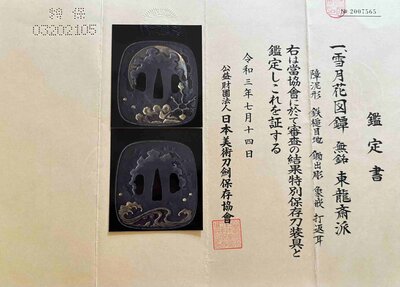 鑑定書
一、雪月花図鐔 無銘 東龍斎派
障泥形 鉄槌目地 鋤出彫 象嵌 打返耳
右は當協會に於て審査の結果特別保存刀装具と
鑑定しこれを証する
令和三年七月十四日
公益財團法人 日本美術刀劍保存協會
特保
03202105
№ 2007565